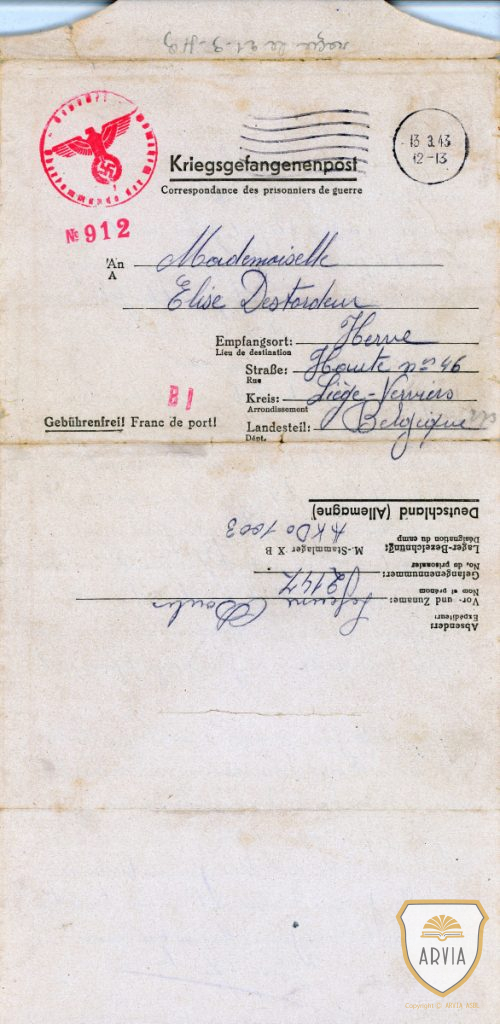 reçu le 21-3-43
13.3.43
12-13
Kriegsgefangenenpost
Correspondance des prisonniers de guerre
№ 912
An
A
Mademoiselle
Elise Destordeur
Empfangsort: Herve
Lieu de destination
Straße: Haute n° 46
Rue
Kreis: Liège-Verviers
Arrondissement
Landesteil: Belgique
Dépt.
BI
Gebührenfrei! Franc de port!
Absender:
Expéditeur:
Vor- und Zuname: Lejeune
Nom et prénom
Gefangenennummer: 2147
No. du prisonnier
Lager-Bezeichnung: M.-Stammlager X B
Désignation du camp
AKDo 1003
Deutschland (Allemagne)
ARVIA
Copyright © ARVIA ASBL